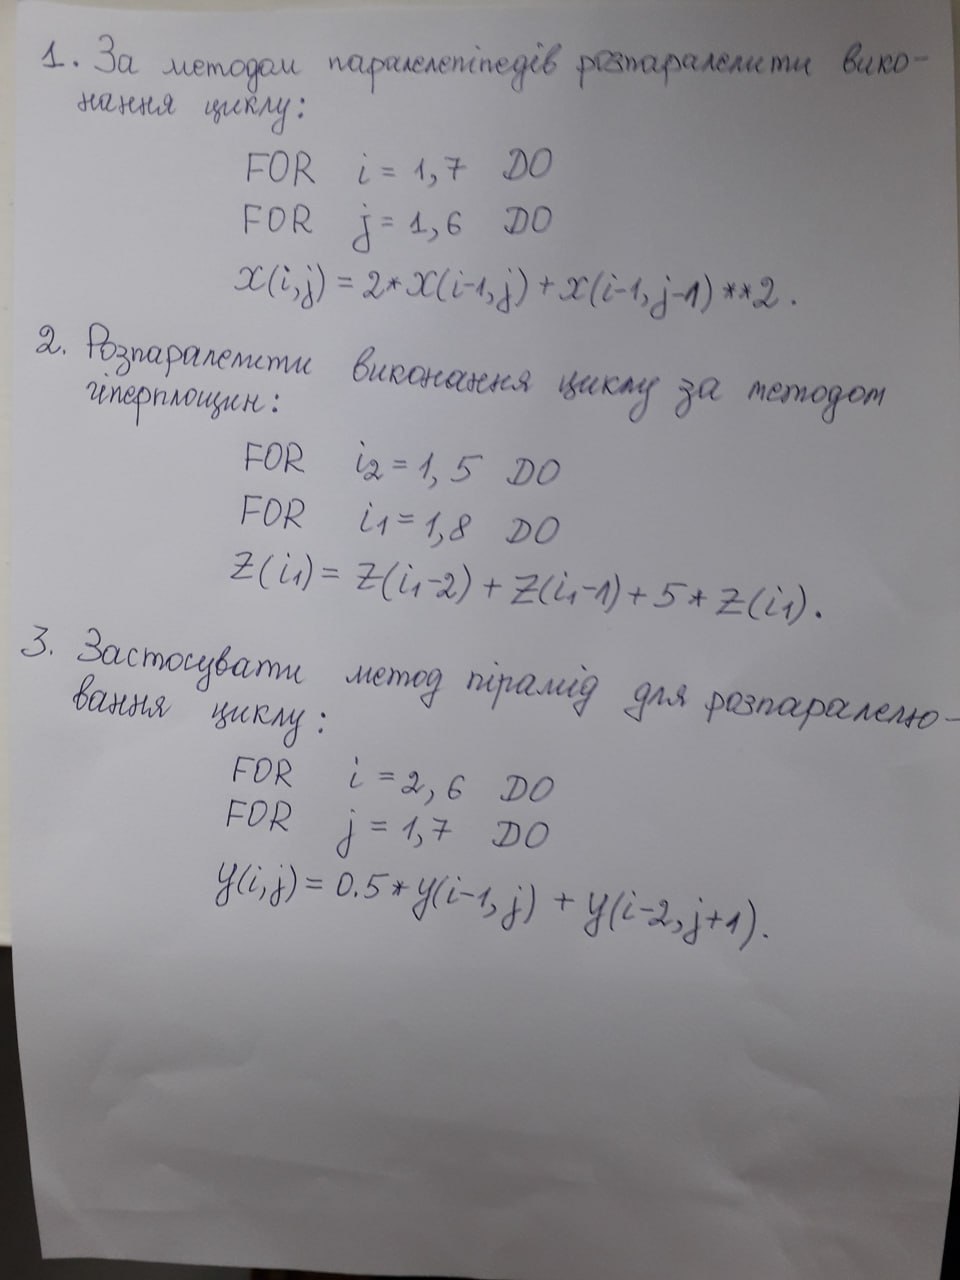 1. За методом паралелепіпедів розпаралелити вико-
нання циклу:
FOR i = 1,7 DO
FOR j = 1,6 DO
X(i,j) = 2*X(i-1,j) + X(i-1,j-1)**2.
2. Розпаралелити виконання циклу за методом
гіперплощин:
FOR i2 = 1,5 DO
FOR i1 = 1,8 DO
Z(i1) = Z(i1-2) + Z(i1-1) + 5*Z(i1).
3. Застосувати метод пірамід для розпаралелю-
вання циклу:
FOR i = 2,6 DO
FOR j = 1,7 DO
y(i,j) = 0.5*y(i-1,j) + y(i-2,j+1).